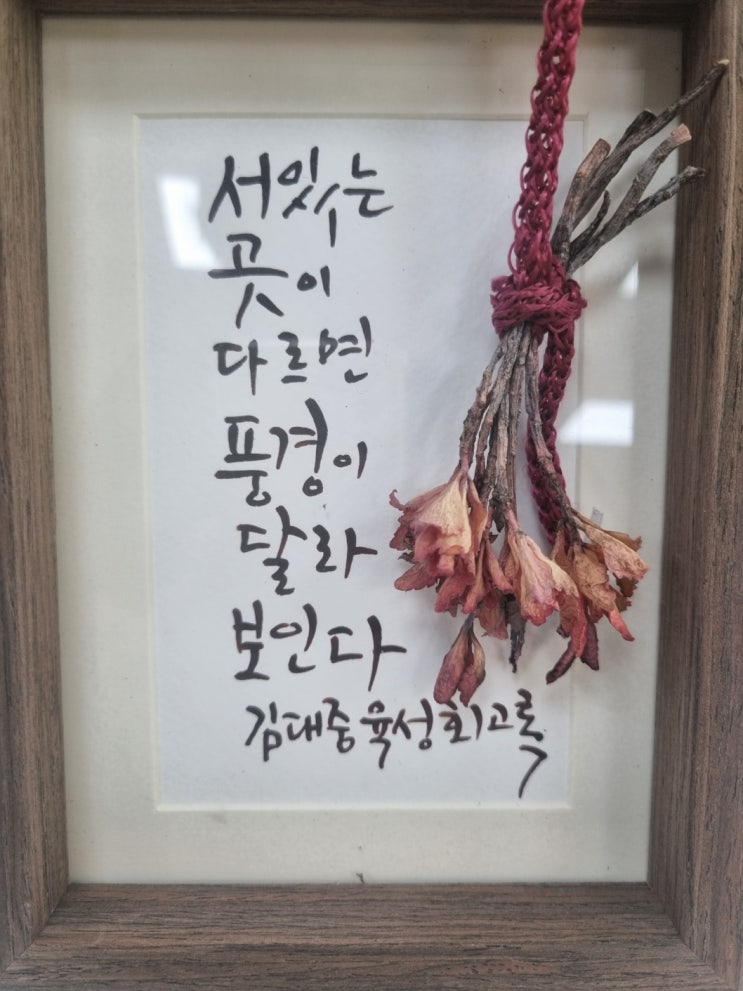 서있는
곳이
다르면
풍경이
달라
보인다
김대중육성회고록